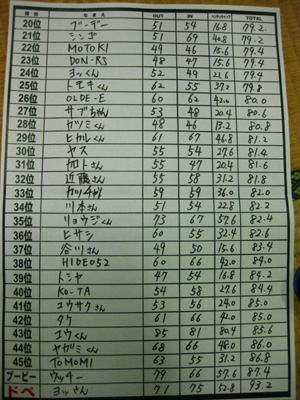 順位 なまえ OUT IN ハンディキャップ TOTAL
20位 ブーデー 51 54 16.8 79.2
21位 51 69 40.8 79.2
22位 MOTOKI 49 46 15.6 79.4
23位 DON-RS 48 47 15.6 79.4
24位 ヨッくん 52 49 21.6 79.4
25位 トモキくん 62 55 37.2 79.8
26位 OLDE-E 60 62 42.0 80.0
27位 サブちゃん 53 48 20.4 80.6
28位 ゼツミくん 48 46 13.2 80.8
29位 ヒカルくん 61 67 46.8 81.2
30位 ヤス 55 54 27.6 81.4
31位 加トさん 55 47 20.4 81.6
32位 近藤さん 55 58 31.2 81.8
33位 59 59 36.0 82.0
34位 川本さん 51 54 22.8 82.2
35位 リョウジくん 73 67 57.6 82.4
36位 ヒサシ 60 55 32.4 82.6
37位 谷川さん 49 50 15.6 83.4
38位 HIDE052 60 66 42.0 84.0
39位 トシヤ 47 54 16.8 84.2
40位 KO-TA 54 58 27.6 84.4
41位 ユウサクさん 53 56 24.0 85.0
42位 タケ 61 66 42.0 85.0
43位 ユウくん 85 81 80.4 85.6
44位 ヤガミくん 68 66 48.0 86.0
45位 TOMOMI 63 55 31.2 86.8
ブービー ウッチー 79 66 57.6 87.4
ドベ ヨッさん 71 75 52.8 93.2